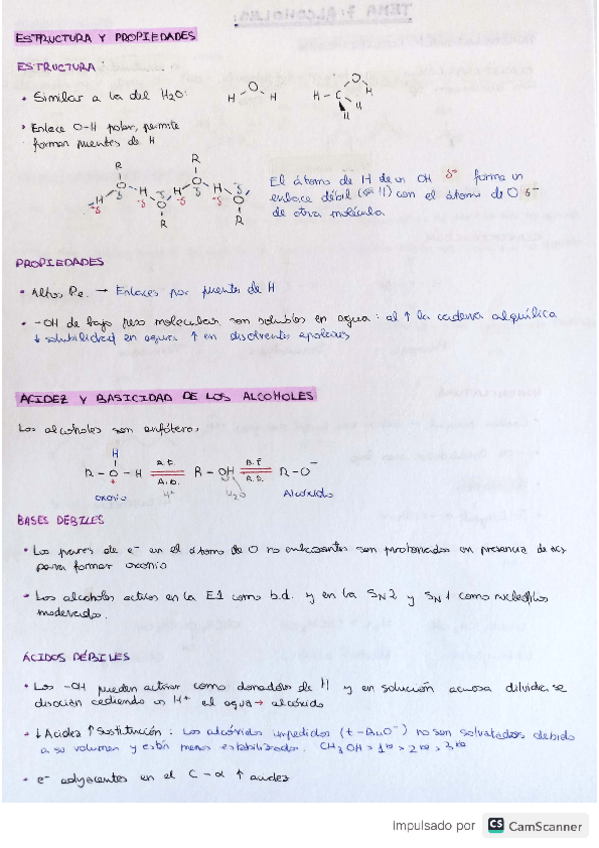 TEMA 7: ALCOHOLES:
ESTRUCTURA Y PROPIEDADES
ESTRUCTURA:
• Similar a la del H2O:
H O H
H - C O H H H
• Enlace O-H polar, permite
formar puentes de H
R R
H O H O H O H O H
R R
El átomo de H de un OH δ+ forma un
enlace débil (= 11) con el átomo de O δ-
de otra molécula
PROPIEDADES
• Altos Pe. → Enlaces por puentes de H
• -OH de bajo peso molecular son solubles en agua: al ↑ la cadena alquílica
↓ solubilidad en agua ↑ en disolventes apolares
ACIDEZ Y BASICIDAD DE LOS ALCOHOLES
Los alcoholes son anfóteros
H
R - O - H A.F. A.D. R - OH B.F. A.D. R - O-
+
oxonio H+ H2O Alcóxido
BASES DÉBILES
• Los pares de e- en el átomo de O no enlazantes son protonados en presencia de
para formar oxonio
• Los alcoholes actúan en la E1 como b.d. y en la SN2 y SN1 como nucleófilos
moderados.
ÁCIDOS DÉBILES
• Los -OH pueden actuar como donadores de H y en solución acuosa diluida se
disocian cediendo un H+ al agua → alcóxido
• ↓ Acidez ↑ Sustitución: Los alcóxidos impedidos (t-BuO-) no son solvatados debido
a su volumen y están menos estabilizados. CH3OH > 1rio > 2rio > 3rio
• e- adyacentes en el C-α ↑ acidez
Impulsado por CS CamScanner